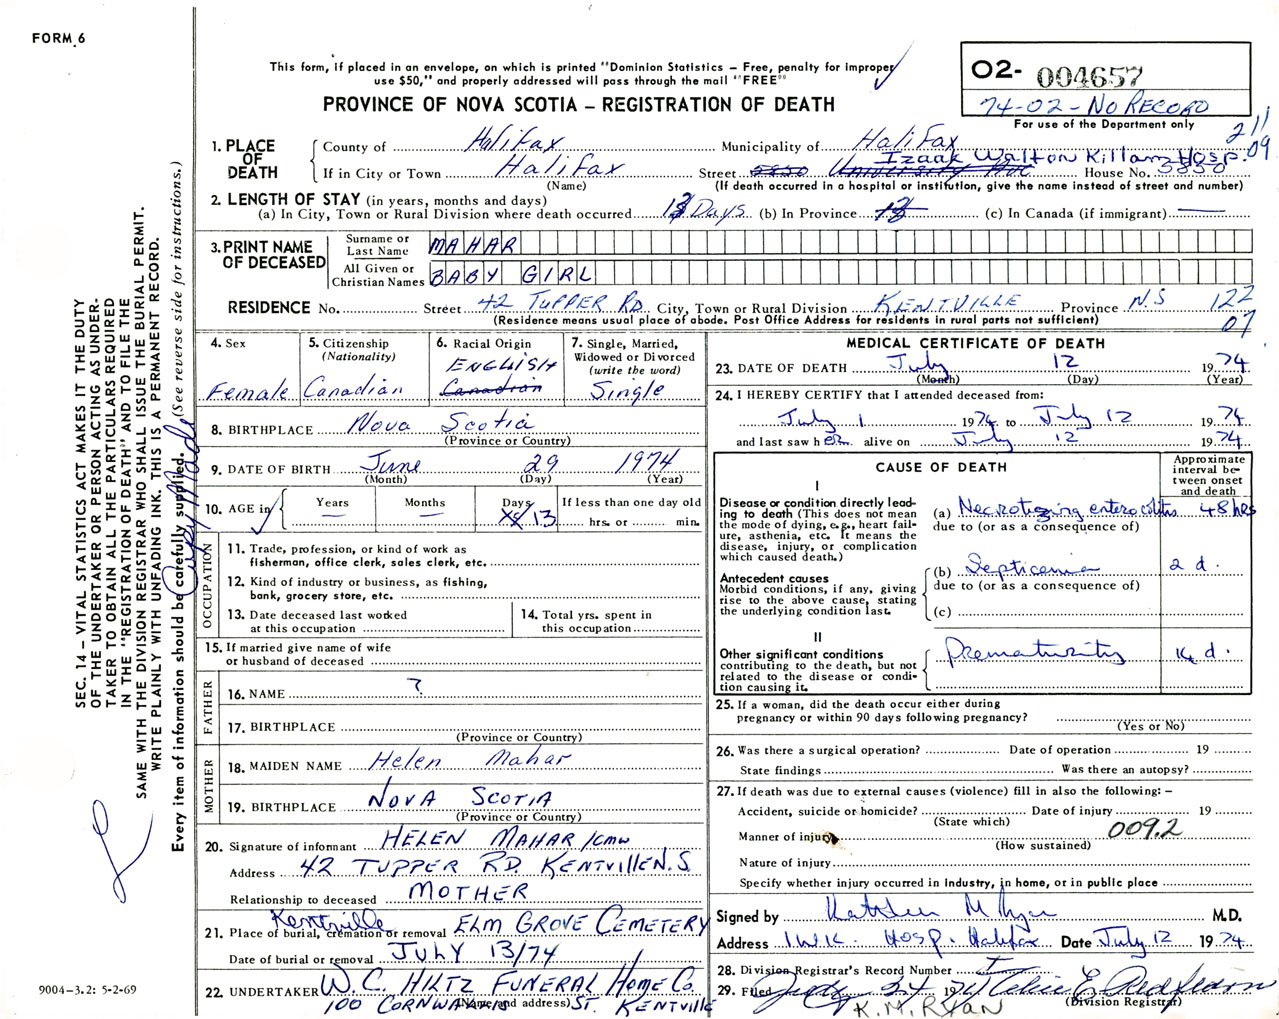 FORM 6
This form, if placed in an envelope, on which is printed "Dominion Statistics – Free, penalty for improper
use $50," and properly addressed will pass through the mail "FREE"
PROVINCE OF NOVA SCOTIA – REGISTRATION OF DEATH
O2- 004657
74-02-NO RECORD
For use of the Department only
211
09
1. PLACE OF DEATH
County of Halifax Municipality of Halifax
Izaak Walton Killam Hosp.
If in City or Town Halifax Street 5850 University Ave House No. 5850
(Name) (If death occurred in a hospital or institution, give the name instead of street and number)
2. LENGTH OF STAY (in years, months and days)
(a) In City, Town or Rural Division where death occurred 13 Days (b) In Province 13 (c) In Canada (if immigrant) —
3. PRINT NAME OF DECEASED
Surname or Last Name MAHAR
All Given or Christian Names BABY GIRL
RESIDENCE No. Street 42 TUPPER RD City, Town or Rural Division KENTVILLE Province N.S 122
(Residence means usual place of abode. Post Office Address for residents in rural parts not sufficient)
07
4. Sex
Female
5. Citizenship
(Nationality)
Canadian
6. Racial Origin
ENGLISH
Canadian
7. Single, Married,
Widowed or Divorced
(write the word)
Single
8. BIRTHPLACE Nova Scotia
(Province or Country)
9. DATE OF BIRTH June 29 1974
(Month) (Day) (Year)
10. AGE in
Years
—
Months
—
Days
13
If less than one day old
hrs. or min.
OCCUPATION
11. Trade, profession, or kind of work as
fisherman, office clerk, sales clerk, etc.
12. Kind of industry or business, as fishing,
bank, grocery store, etc.
13. Date deceased last worked
at this occupation
14. Total yrs. spent in
this occupation
15. If married give name of wife
or husband of deceased
FATHER
16. NAME ?
17. BIRTHPLACE
(Province or Country)
MOTHER
18. MAIDEN NAME Helen Mahar
19. BIRTHPLACE NOVA SCOTIA
(Province or Country)
20. Signature of informant HELEN MAHAR/cmw
Address 42 TUPPER RD. KENTVILLE N.S.
Relationship to deceased MOTHER
Kentville
21. Place of burial, cremation or removal ELM GROVE CEMETERY
Date of burial or removal JULY 13/74
22. UNDERTAKER W.C. HILTZ FUNERAL HOME CO.
(Name and address)
100 CORNWALLIS ST. KENTVILLE
MEDICAL CERTIFICATE OF DEATH
23. DATE OF DEATH July 12 1974
(Month) (Day) (Year)
24. I HEREBY CERTIFY that I attended deceased from:
July 1 1974 to July 12 1974
and last saw her alive on July 12 1974
CAUSE OF DEATH
Approximate
interval be-
tween onset
and death
I
Disease or condition directly lead-
ing to death (This does not mean
the mode of dying, e.g., heart fail-
ure, asthenia, etc. It means the
disease, injury, or complication
which caused death.)
(a) Necrotizing enterocolitis 48 hrs
due to (or as a consequence of)
Antecedent causes
Morbid conditions, if any, giving
rise to the above cause, stating
the underlying condition last.
(b) Septicemia 2 d.
due to (or as a consequence of)
(c)
II
Other significant conditions
contributing to the death, but not
related to the disease or condi-
tion causing it.
Prematurity 14 d.
25. If a woman, did the death occur either during
pregnancy or within 90 days following pregnancy?
(Yes or No)
26. Was there a surgical operation? Date of operation 19
State findings Was there an autopsy?
27. If death was due to external causes (violence) fill in also the following: –
Accident, suicide or homicide? Date of injury 19
(State which)
009.2
Manner of injury
(How sustained)
Nature of injury
Specify whether injury occurred in industry, in home, or in public place
Signed by Kathleen M Ryan M.D.
Address I.W.K. Hosp. Halifax Date July 12 1974
28. Division Registrar's Record Number
29. Filed July 24 1974
(Division Registrar)
K.M. RYAN
SEC. 14 – VITAL STATISTICS ACT MAKES IT THE DUTY
OF THE UNDERTAKER OR PERSON ACTING AS UNDER-
TAKER TO OBTAIN ALL THE PARTICULARS REQUIRED
IN THE "REGISTRATION OF DEATH" AND TO FILE THE
SAME WITH THE DIVISION REGISTRAR WHO SHALL ISSUE THE BURIAL PERMIT.
WRITE PLAINLY WITH UNFADING INK. THIS IS A PERMANENT RECORD.
Every item of information should be carefully supplied. (See reverse side for instructions.)
Copy Made
9004-3.2: 5-2-69